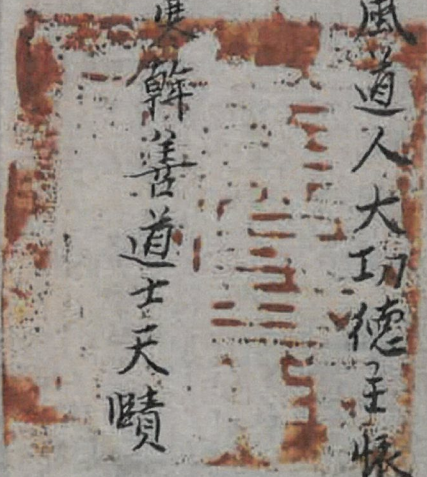 風道人大功德主懷
幹善道士天賾